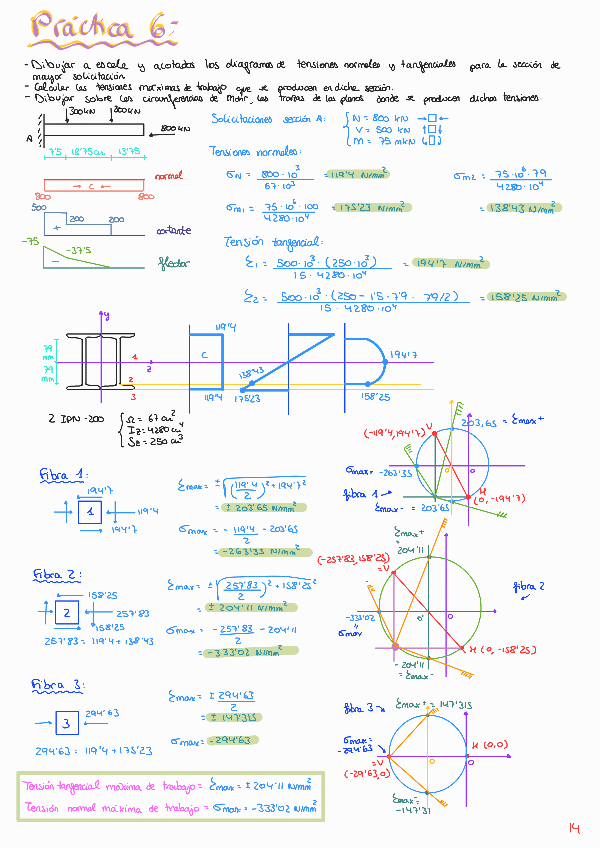 Práctica 6:
- Dibujar a escala y acotados los diagramas de tensiones normales y tangenciales para la sección de
mayor solicitación
- Calcular las tensiones máximas de trabajo que se producen en dicha sección.
- Dibujar sobre las circunferencias de Mohr, las trazas de los planos donde se producen dichas tensiones.
300kN 200kN
800kN
A
7'5 18'75cm 13'75
normal
800 → C ← 800
500
200 200
+
cortante
-75
-37'5
-
flector
Solicitaciones sección A:
N = 800 kN → □ ←
V = 500 kN ↑□↓
M = 75 mkN
Tensiones normales:
σN = 800·10³ / 67·10² = 119'4 N/mm²
σm2 = 75·10⁶·79 / 4280·10⁴ = 138'43 N/mm²
σm1 = 75·10⁶·100 / 4280·10⁴ = 175'23 N/mm²
Tensión tangencial:
Σ1 = 500·10³·(250·10³) / 15·4280·10⁴ = 194'7 N/mm²
Σ2 = 500·10³·(250-1'5·7'9·79/2) / 15·4280·10⁴ = 158'25 N/mm²
y
79 mm
79 mm
1
2
2
3
119'4
C
119'4
138'43
175'23
194'7
158'25
2 IPN-200
Ω = 67 cm²
Iz = 4280 cm⁴
Sz = 250 cm³
(-119'4, 194'7) V
203,65 = Σmax+
σmax = -263'35
fibra 1 →
H (0, -194'7)
Σmax- = 203'65
0' 0
Fibra 1:
194'7
1
119'4
194'7
Σmax = ±√((119'4/2)² + 194'7²)
= ± 203'65 N/mm²
σmax = -119'4/2 - 203'65
= -263'35 N/mm²
Fibra 2:
158'25
2
257'83
158'25
257'83 = 119'4 + 138'43
Σmax = ±√((257'83/2)² + 158'25²)
= ± 204'11 N/mm²
σmax = -257'83/2 - 204'11
= -333'02 N/mm²
Σmax+
=
204'11
(-257'83, 158'25)
= V
fibra 2
-333'02
=
σmax
0' 0
H (0, -158'25)
-204'11
= Σmax-
Fibra 3:
3
294'63
294'63 = 119'4 + 175'23
Σmax = ± 294'63 / 2
= ± 147'315
σmax = -294'63
fibra 3
Σmax+ = 147'315
σmax =
-294'63
= V
(-29'63,0)
H (0,0)
0' 0
Σmax- =
-147'31
Tensión tangencial máxima de trabajo = Σmax = ± 204'11 N/mm²
Tensión normal máxima de trabajo = σmax = -333'02 N/mm²
14